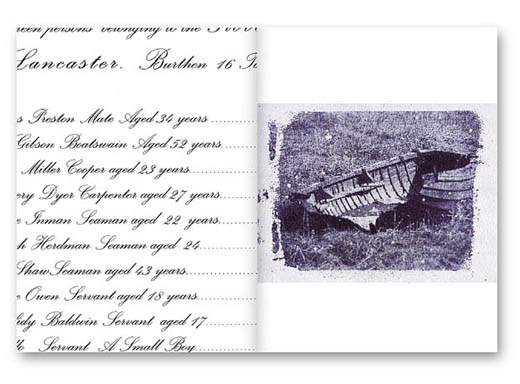 persons belonging to the
Lancaster. Burthen 16
Preston Mate Aged 34 years
Gilson Boatswain Aged 52 years
Miller Cooper aged 23 years
Dyer Carpenter aged 27 years
Inman Seaman aged 22 years
Herdman Seaman aged 24
Shaw Seaman aged 43 years
Owen Servant aged 18 years
Baldwin Servant aged 17
Servant A Small Boy